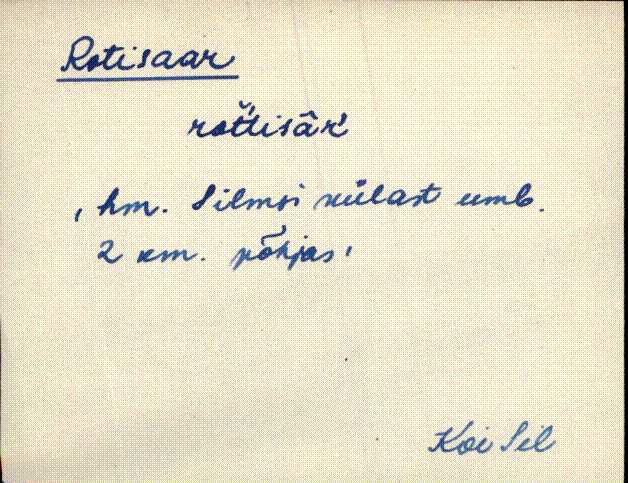 Rotisaar
rot̆tisār'
, hm. Silmsi külast umb.
2 km. põhjas '
Koi Sil